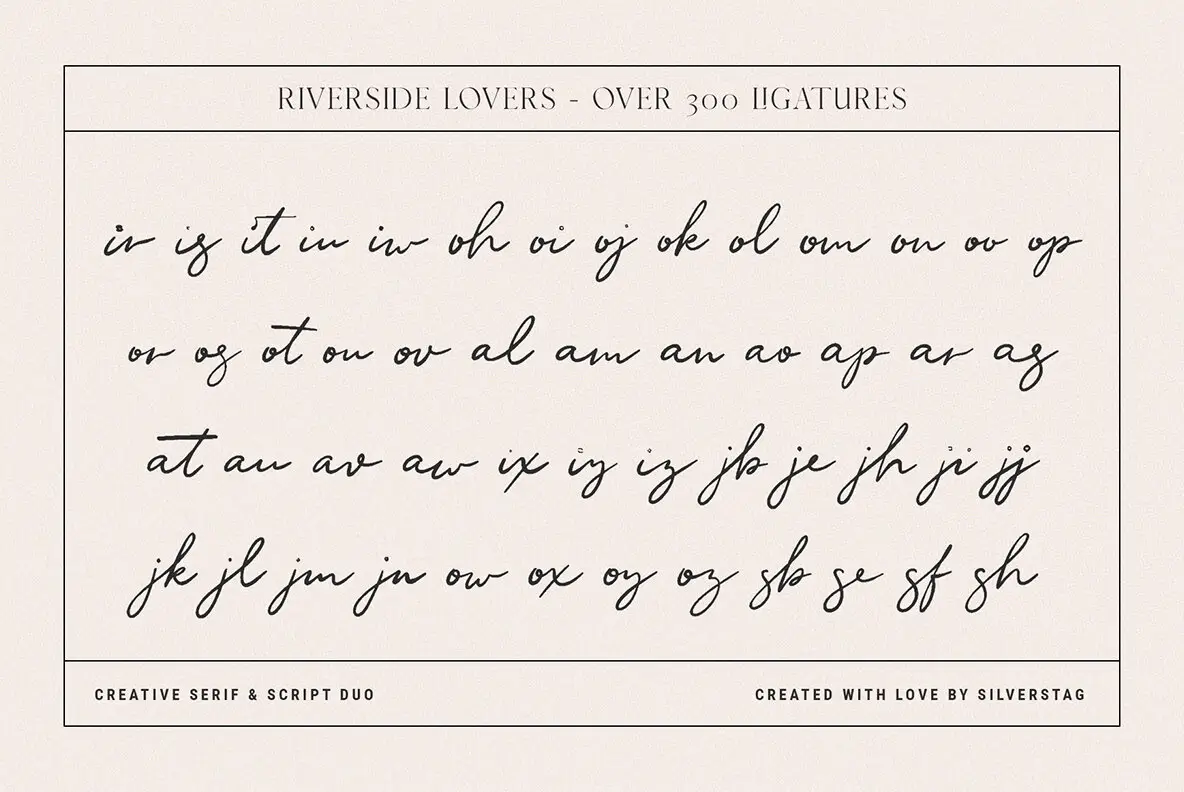 RIVERSIDE LOVERS - OVER 300 LIGATURES
ir is it iu iw oh oi oj ok ol om on oo op
or os ot ou ov al am an ao ap ar as
at au av aw ix iy iz jb je jh ji jj
jk jl jm jn ow ox oy oz sb se sf sh
CREATIVE SERIF & SCRIPT DUO
CREATED WITH LOVE BY SILVERSTAG